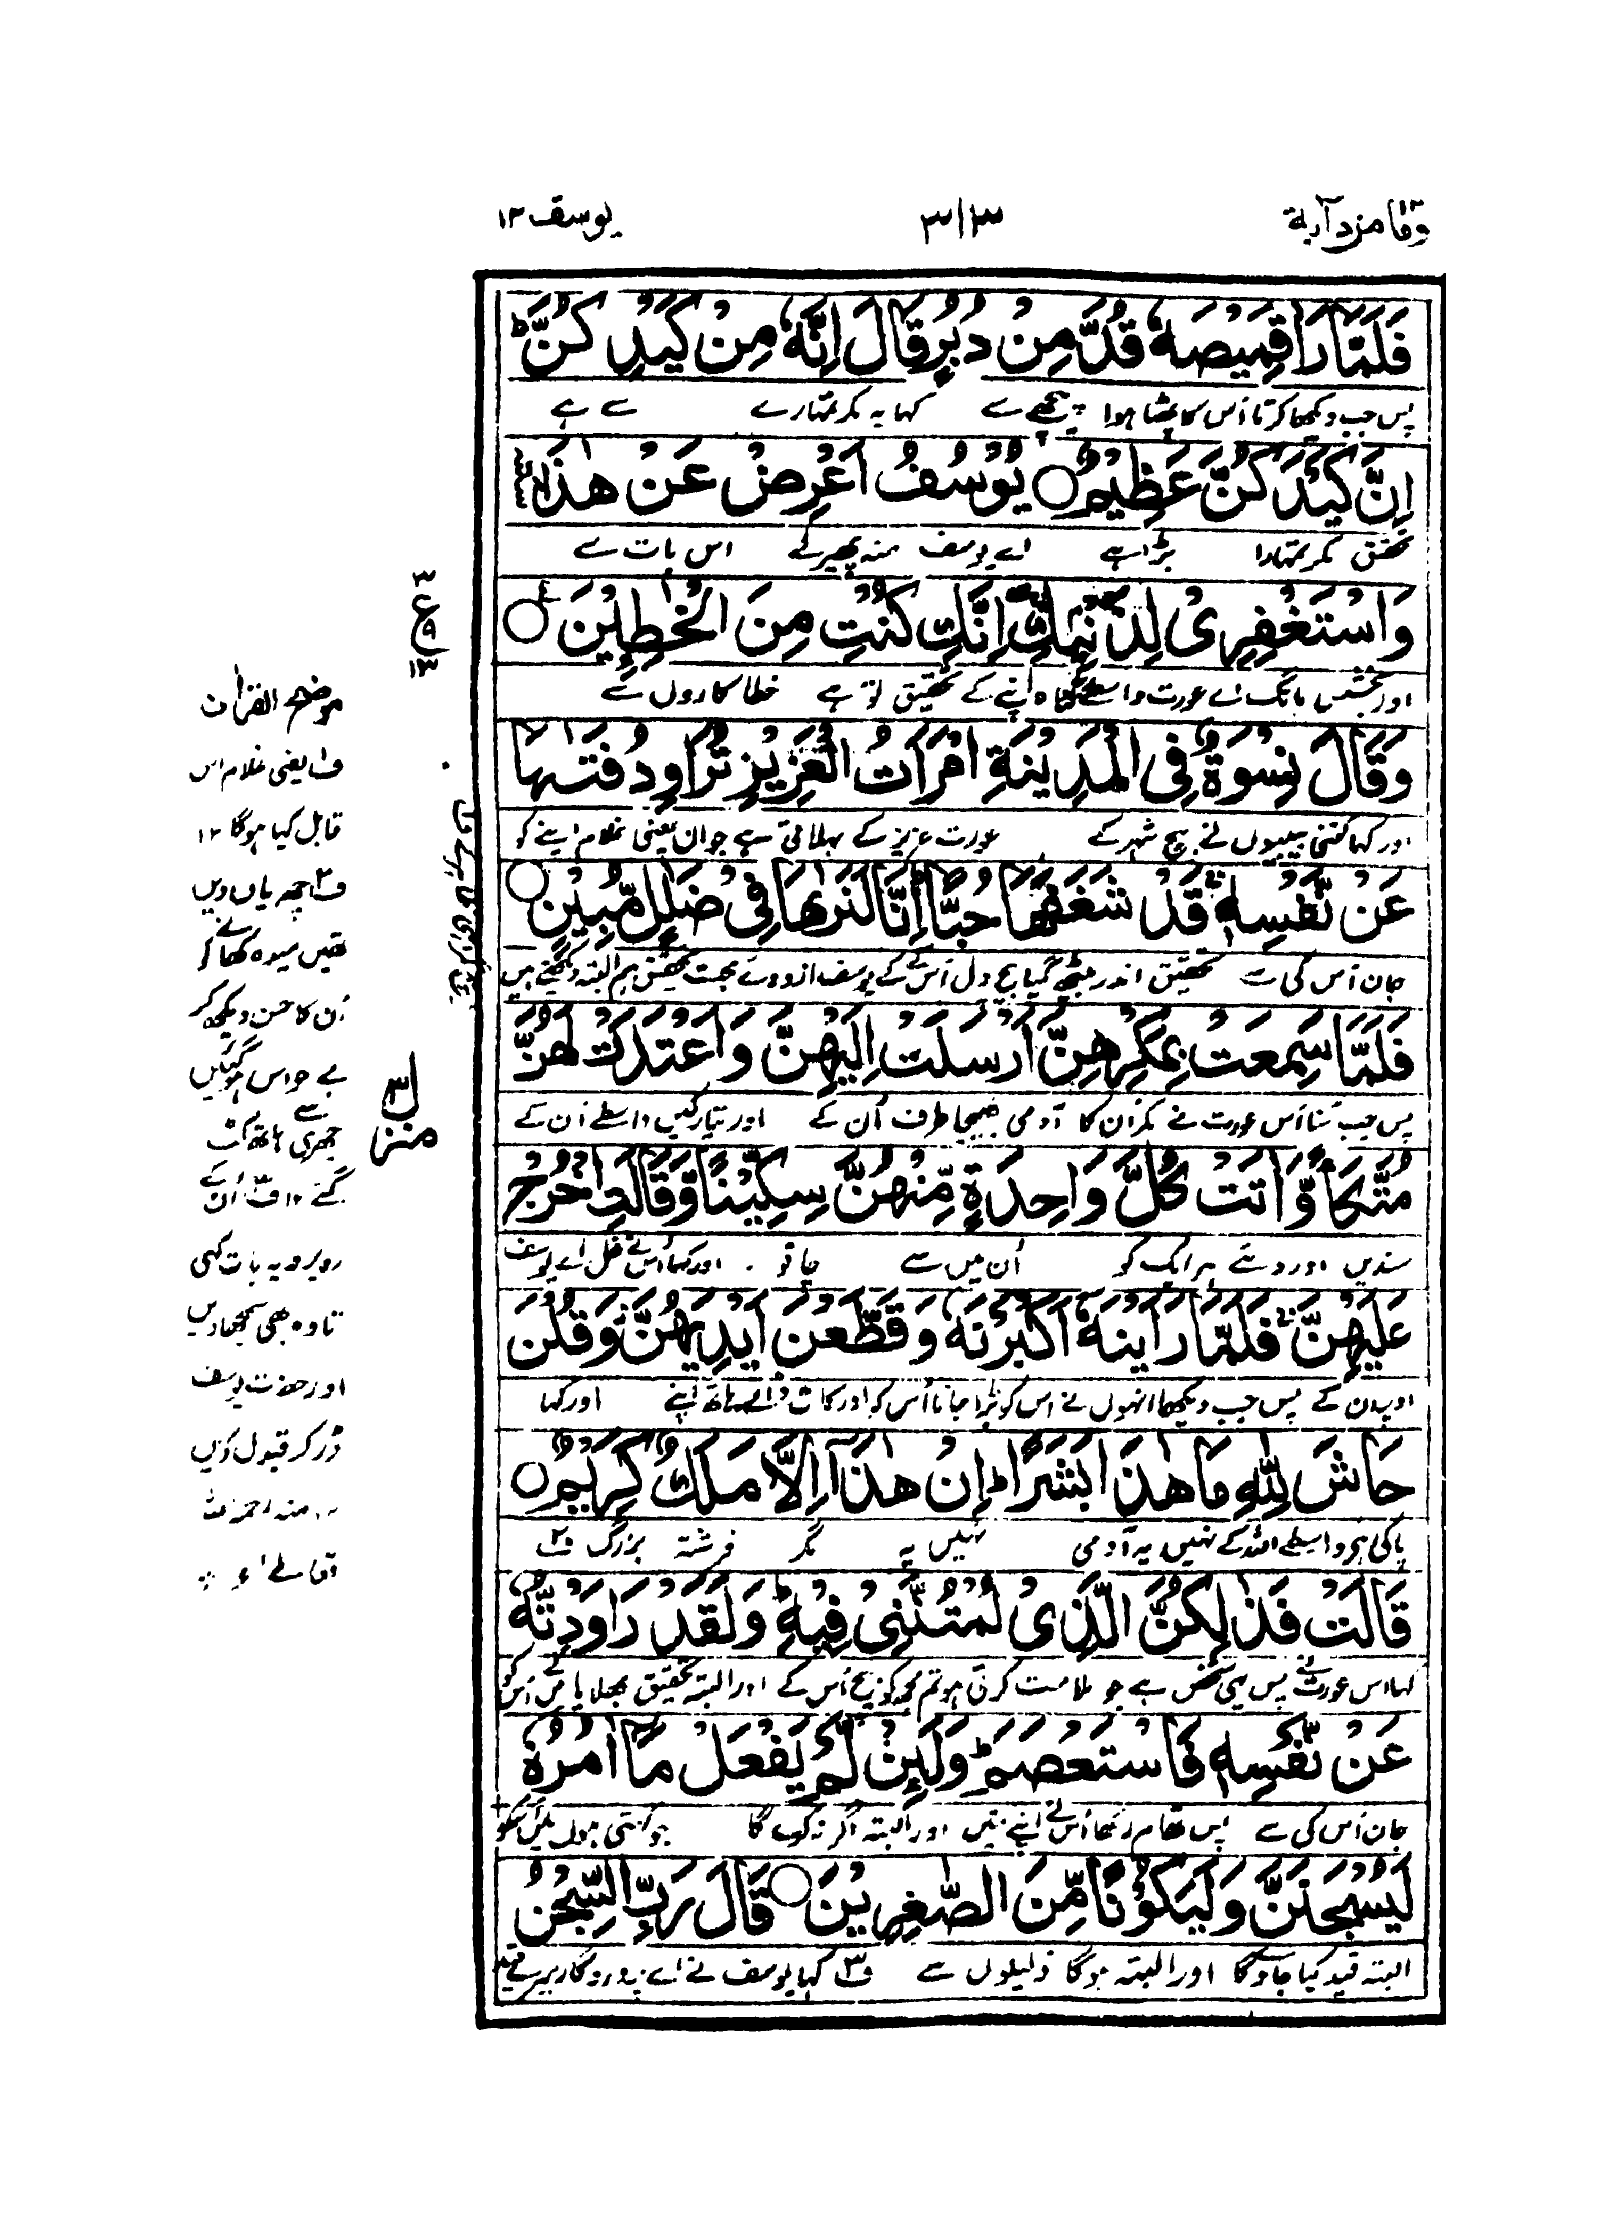 وما من دآبة ۱۲
۳۱۳
یوسف ۱۲
فَلَمَّا رَاٰ قَمِیْصَهٗ قُدَّ مِنْ دُبُرٍ قَالَ اِنَّهٗ مِنْ كَیْدِكُنَّ ؕ
پس جب دیکھا کرتا اُس کا پھٹا ہوا پیچھے سے کہا یہ مکر تمہارے سے ہے
اِنَّ كَیْدَكُنَّ عَظِیْمٌ ○ یُوْسُفُ اَعْرِضْ عَنْ هٰذَا
تحقیق مکر تمہارا بڑا ہے اے یوسف منہ پھیر لے اس بات سے
وَاسْتَغْفِرِیْ لِذَنْۢبِكِ اِنَّكِ كُنْتِ مِنَ الْخٰطِـِٕیْنَ ○
اور بخشش مانگ اے عورت واسطے گناہ اپنے کے تحقیق تو ہے خطا کاروں سے
وَقَالَ نِسْوَةٌ فِی الْمَدِیْنَةِ امْرَاَتُ الْعَزِیْزِ تُرَاوِدُ فَتٰىهَا
اور کہا کتنی بیبیوں نے بیچ شہر کے عورت عزیز کے بہلاتی ہے جوان یعنی غلام اپنے کو
عَنْ نَّفْسِهٖ ۚ قَدْ شَغَفَهَا حُبًّا ؕ اِنَّا لَنَرٰىهَا فِیْ ضَلٰلٍ مُّبِیْنٍ ○
جان اُس کی سے تحقیق اندر بیٹھ گیا بیچ دل اُس کے کے یوسف از روے محبت تحقیق ہم البتہ دیکھتے ہیں
فَلَمَّا سَمِعَتْ بِمَكْرِهِنَّ اَرْسَلَتْ اِلَیْهِنَّ وَاَعْتَدَتْ لَهُنَّ
پس جب سُنا اُس عورت نے مکر ان کا آدمی بھیجا طرف اُن کے اور تیار کیں واسطے اُن کے
مُتَّكَاً وَّاٰتَتْ كُلَّ وَاحِدَةٍ مِّنْهُنَّ سِكِّیْنًا وَّقَالَتِ اخْرُجْ
مسندیں اور دے ہر ایک کو اُن میں سے چاقو اور کہا اُس نے نکل اے یوسف
عَلَیْهِنَّ ۚ فَلَمَّا رَاَیْنَهٗۤ اَكْبَرْنَهٗ وَقَطَّعْنَ اَیْدِیَهُنَّ وَقُلْنَ
اوپر ان کے پس جب دیکھا انہوں نے اس کو بڑا جانا اُس کو اور کاٹ ڈالے ہاتھ اپنے اور کہا
حَاشَ لِلّٰهِ مَا هٰذَا بَشَرًا ؕ اِنْ هٰذَاۤ اِلَّا مَلَكٌ كَرِیْمٌ ○
پاکی ہے واسطے اللہ کے نہیں یہ آدمی نہیں یہ مگر فرشتہ بزرگ ف۲
قَالَتْ فَذٰلِكُنَّ الَّذِیْ لُمْتُنَّنِیْ فِیْهِ ؕ وَلَقَدْ رَاوَدْتُّهٗ
کہا اس عورت نے پس یہی شخص ہے جو ملامت کرتی ہو تم مجھ کو بیچ اُس کے اور البتہ تحقیق بھلایا میں نے اُس کو
عَنْ نَّفْسِهٖ فَاسْتَعْصَمَ ؕ وَلَىِٕنْ لَّمْ یَفْعَلْ مَاۤ اٰمُرُهٗ
جان اُس کی سے پس تھام رکھا اُس نے اپنے تئیں اور البتہ اگر نہ کرے گا جو کہتی ہوں میں اُسکو
لَیُسْجَنَنَّ وَلَیَكُوْنًا مِّنَ الصّٰغِرِیْنَ ○ قَالَ رَبِّ السِّجْنُ
البتہ قید کیا جاوے گا اور البتہ ہوگا ذلیلوں سے ف۳ کہا یوسف نے اے پروردگار میرے قید
۳
ع
۹
۱۳
منزل ۳
موضح القرآن
ف۱ یعنی غلام اس
قابل کیا ہوگا ۱۲
ف۲ چھریاں دیں
تھیں میوہ کھانے کو
اُن کا حسن دیکھ کر
بے حواس ہو گئیں
چھری سے ہاتھ کٹ
گئے ۱۲ ف۳ ان کے
روبرو یہ بات کہی
تا وہ بھی سمجھادیں
اور حضرت یوسف
ڈر کر قبول کریں